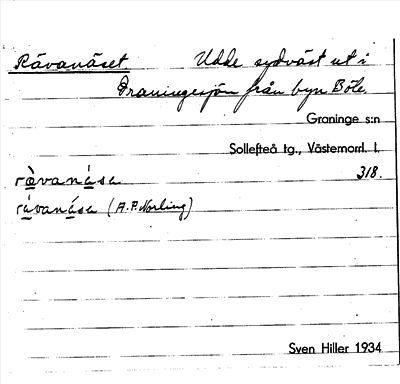 Rävanäset. Udde sydväst ut i
Graningesjön från byn Böle.
Graninge s:n
Sollefteå tg., Västernorrl. l.
318.
rävanäsa
rävanäsa (A. P. Norling)
Sven Hiller 1934